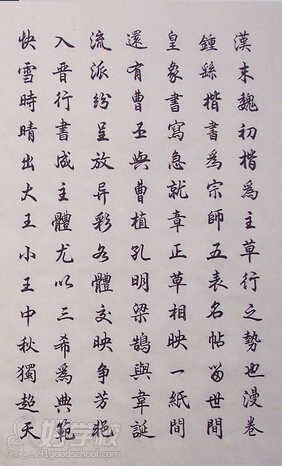 漢末魏初楷為主草行之勢也漫卷
鍾繇楷書為宗師五表名帖留世間
皇象書寫急就章正草相映一紙間
還有曹丕與曹植孔明梁鵠與韋誕
流派紛呈放异彩各體交映争芳艷
入晉行書成主體尤以三希為典範
快雪時晴出大王小王中秋獨超天